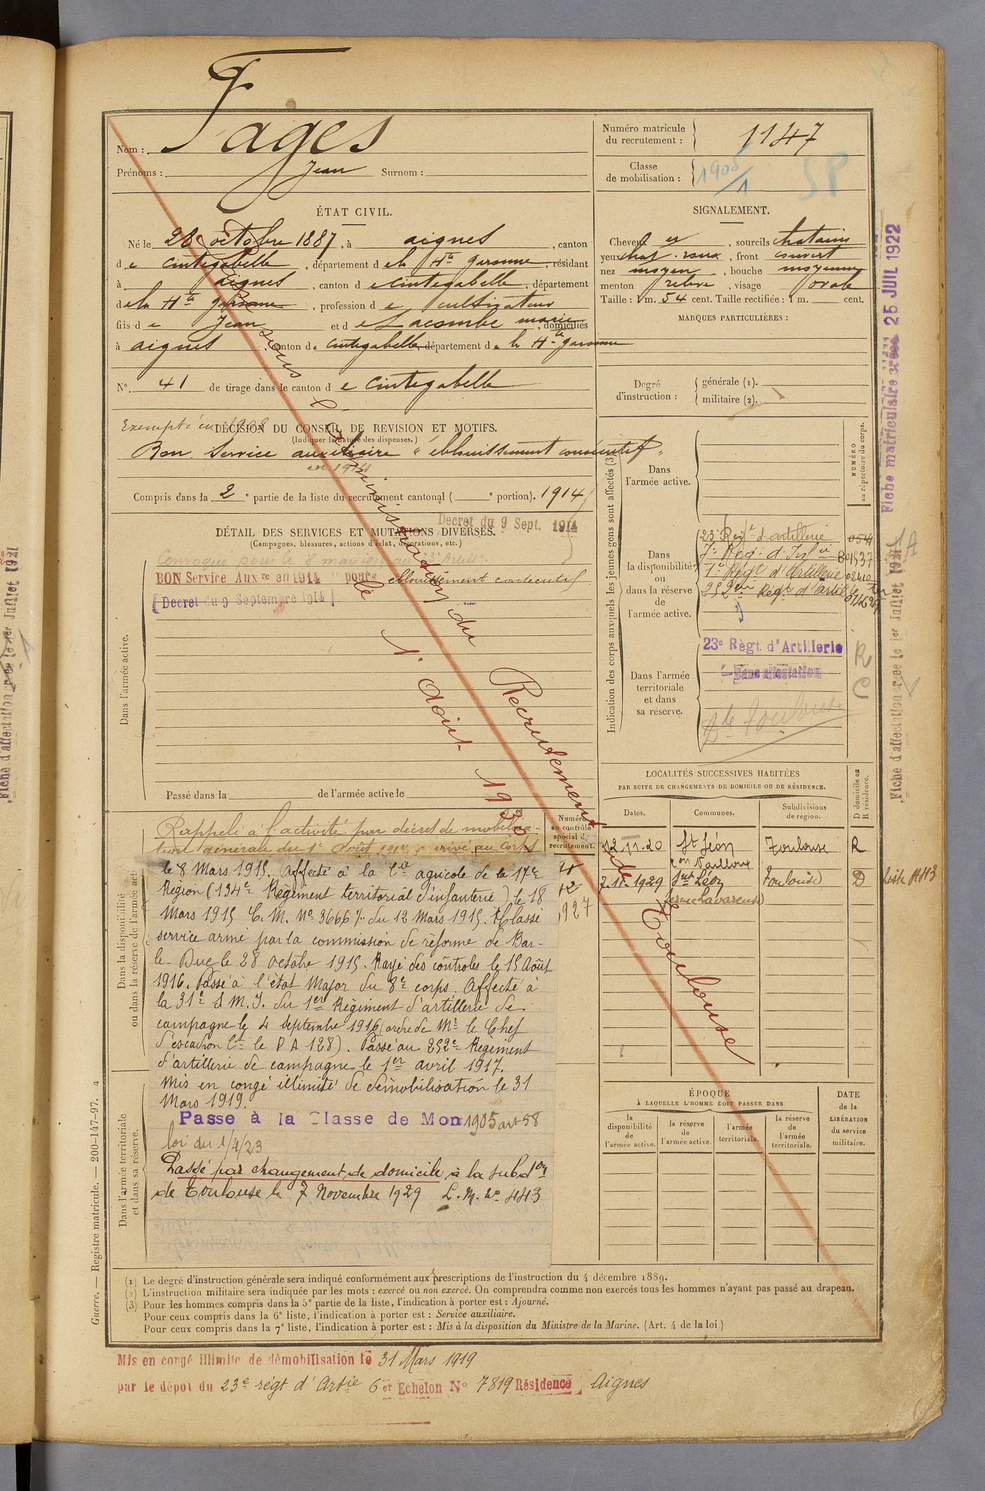 Fages
Nom :
Prénoms : Jean Surnom :
Numéro matricule
du recrutement : 1147
Classe
de mobilisation : 1905/1
SP
ÉTAT CIVIL.
Né le 28 octobre 1887, à aignes, canton
de cintegabelle, département de la Hte garonne, résidant
à aignes, canton de cintegabelle, département
de la Hte garonne, profession de cultivateur
fils de Jean et de Lacombe marie, domiciliés
à aignes, canton de cintegabelle, département de la Hte garonne
N° 41 de tirage dans le canton de cintegabelle
SIGNALEMENT.
Cheveux, sourcils chatains
yeux chat. roux, front couvert
nez moyen, bouche moyenne
menton, visage ovale
Taille : 1 m. 54 cent. Taille rectifiée : 1 m. cent.
MARQUES PARTICULIÈRES :
Degré
d'instruction :
générale (1).
militaire (2).
Exempté en 1908
DÉCISION DU CONSEIL DE REVISION ET MOTIFS.
(Indiquer la nature des dispenses.)
Bon Service auxiliaire "éblouissement consécutif"
en 1914
Compris dans la 2e partie de la liste du recrutement cantonal ( e portion). 1914
Decret du 9 Sept. 1914
DÉTAIL DES SERVICES ET MUTATIONS DIVERSES.
(Campagnes, blessures, actions d'éclat, décorations, etc.)
BON Service Auxre an 1914 pour éblouissement consécutif
Decret du 9 Septembre 1914
Dans l'armée active.
Passé dans la de l'armée active le
Indication des corps auxquels les jeunes gens sont affectés (3)
NUMÉRO
au répertoire du corps.
Dans
l'armée active.
Dans
la disponibilité
ou
dans la réserve
de
l'armée active.
23e Regt d'artillerie
7e Reg. d'Infie
1er Regt d'Artillerie
252e Regt d'artie
Dans l'armée
territoriale
et dans
sa réserve.
23e Règt d'Artillerie
Sans affectation
Toulouse
R
C
LOCALITÉS SUCCESSIVES HABITÉES
PAR SUITE DE CHANGEMENTS DE DOMICILE OU DE RÉSIDENCE.
Dates. Communes. Subdivisions
de région.
D domicile ou
R résidence.
12.11.20 St Léon Toulouse R
con Nailloux
7.11.1929 St Léon Toulouse D
Rappelé à l'activité par décret de mobilisa-
tion générale du 1er Août 1914, arrivé au corps
Numéro
au contrôle
spécial du
recrutement.
Dans la disponibilité
ou dans la réserve de l'armée act
le 8 Mars 1915. Affecté à la Cie agricole de la 17e
Région (134e Régiment territorial d'infanterie) le 18
Mars 1915 C. M. No 3666 % du 12 Mars 1915. Classé
service armé par la commission de réforme de Bar-
le-Duc le 28 octobre 1915. Rayé des contrôles le 15 Août
1916. Passé à l'état Major du 8e corps. Affecté à
la 31e S.M.I. du 1er Régiment d'artillerie de
campagne le 4 septembre 1916 (ordre de Mr le Chef
d'escadron Ct le P A 128). Passé au 252e Régiment
d'artillerie de campagne le 1er avril 1917.
Mis en congé illimité de démobilisation le 31
Mars 1919.
Passe à la Classe de Mon 1905 art 58
loi du 1/4/23
Passé par changement de domicile à la subdon
de Toulouse le 7 Novembre 1929 L. M. No 443
Dans l'armée territoriale
et dans sa réserve.
ÉPOQUE
À LAQUELLE L'HOMME DOIT PASSER DANS
la
disponibilité
de
l'armée active.
la réserve
de
l'armée active.
l'armée
territoriale.
la réserve
de
l'armée
territoriale.
DATE
de la
LIBÉRATION
du service
militaire.
sous l'administration du Recrutement de Toulouse
le 1er Août 1930
(1) Le degré d'instruction générale sera indiqué conformément aux prescriptions de l'instruction du 4 décembre 1889.
(2) L'instruction militaire sera indiquée par les mots : exercé ou non exercé. On comprendra comme non exercés tous les hommes n'ayant pas passé au drapeau.
(3) Pour les hommes compris dans la 5e partie de la liste, l'indication à porter est : Ajourné.
Pour ceux compris dans la 6e liste, l'indication à porter est : Service auxiliaire.
Pour ceux compris dans la 7e liste, l'indication à porter est : Mis à la disposition du Ministre de la Marine. (Art. 4 de la loi)
Mis en congé illimité de démobilisation le 31 Mars 1919
par le dépot du 23e régt d'Artie 6er Echelon No 7819 Résidence Aignes
Guerre. — Registre matricule. — 200-147-97.
Fiche matriculaire créée 25 JUIL 1922
Fiche d'affectation créée le 1er Juillet 1921